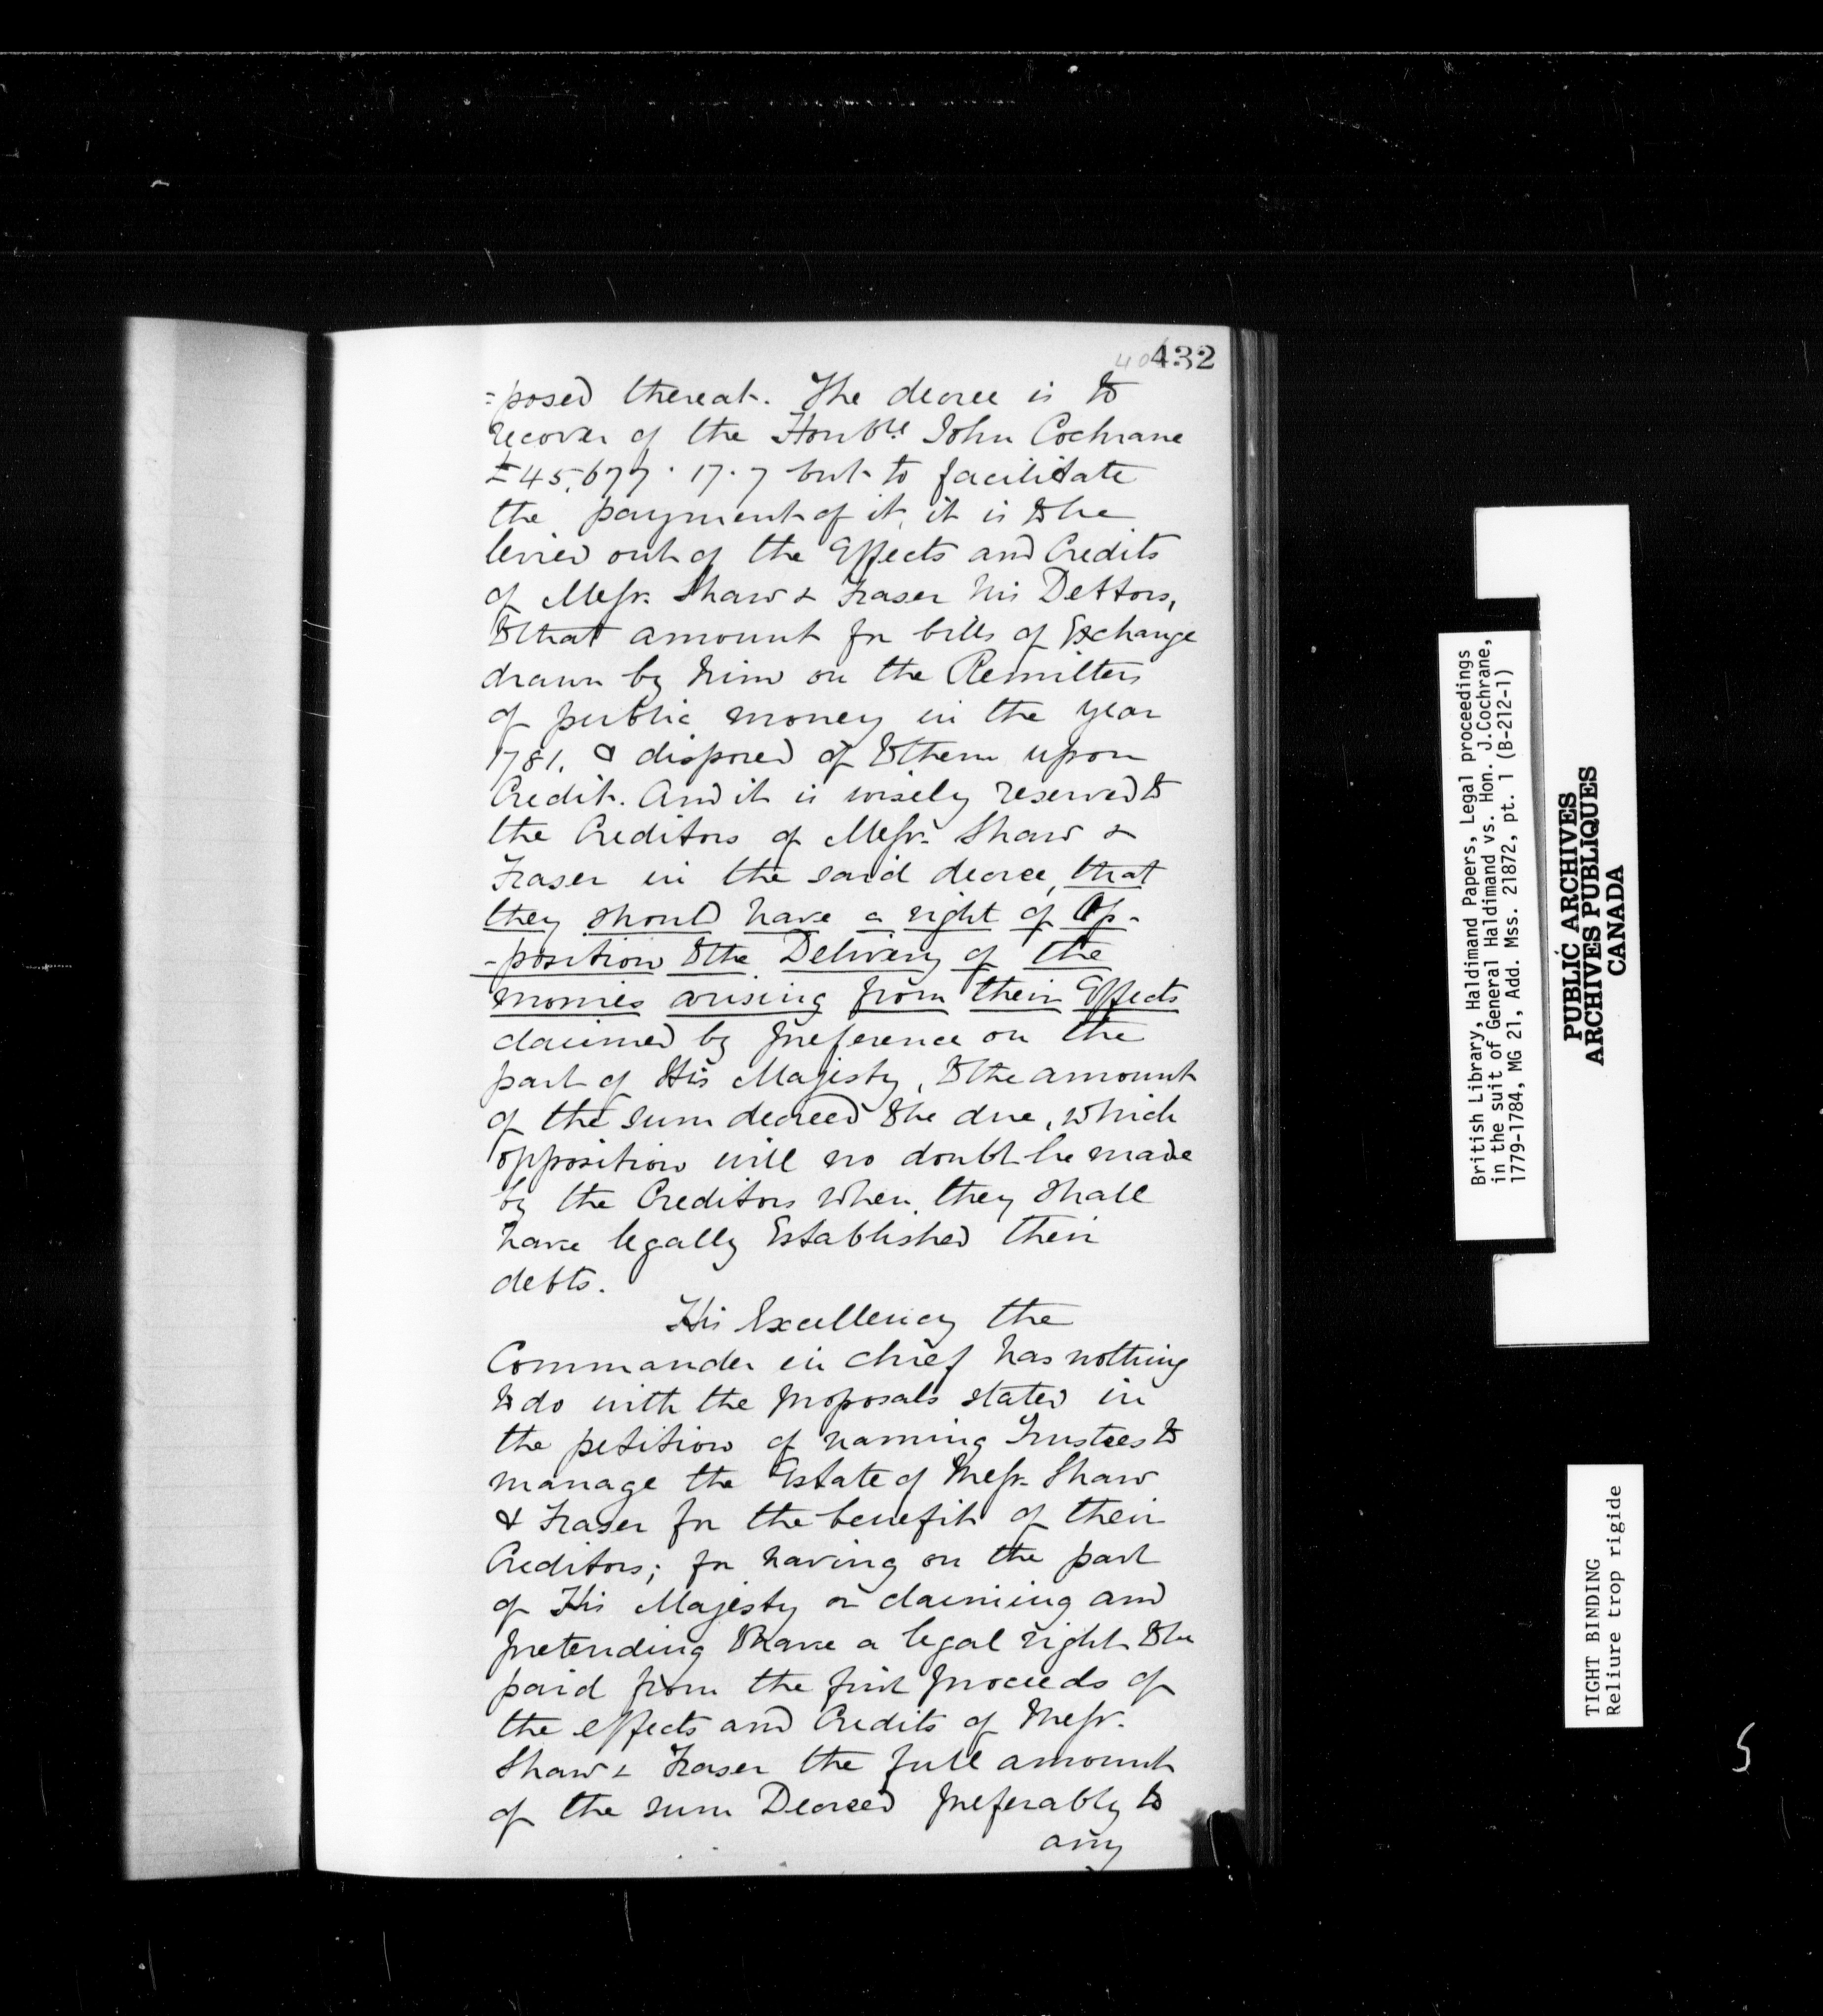 432
=posed thereat. The decree is to
recover of the Honble John Cochrane
£45,677.17.7 but to facilitate
the payment of it, it is to be
levied out of the Effects and Credits
of Messrs Shaw & Fraser his Debtors,
to that amount for bills of Exchange
drawn by him on the Remitters
of public money in the year
1781. & disposed of to them upon
Credit. And it is wisely reserved to
the Creditors of Messrs Shaw &
Fraser in the said decree, that
they should have a right of Op-
-position to the Delivery of the
monies arising from their Effects
claimed by preference on the
part of His Majesty, to the amount
of the sum decreed to be due, which
opposition will no doubt be made
by the Creditors when they shall
have legally Established their
debts.
His Excellency the
Commander in chief has nothing
to do with the proposals stated in
the petition of naming Trustees to
manage the Estate of Messrs Shaw
& Fraser for the benefit of their
Creditors; for having on the part
of His Majesty or claiming and
pretending to have a legal right to be
paid from the first proceeds of
the effects and Credits of Messrs
Shaw & Fraser the full amount
of the sum Decreed preferably to
any
British Library, Haldimand Papers, Legal proceedings
in the suit of General Haldimand vs. Hon. J.Cochrane,
1779-1784, MG 21, Add. Mss. 21872, pt. 1 (B-212-1)
PUBLIC ARCHIVES
ARCHIVES PUBLIQUES
CANADA
TIGHT BINDING
Reliure trop rigide
5